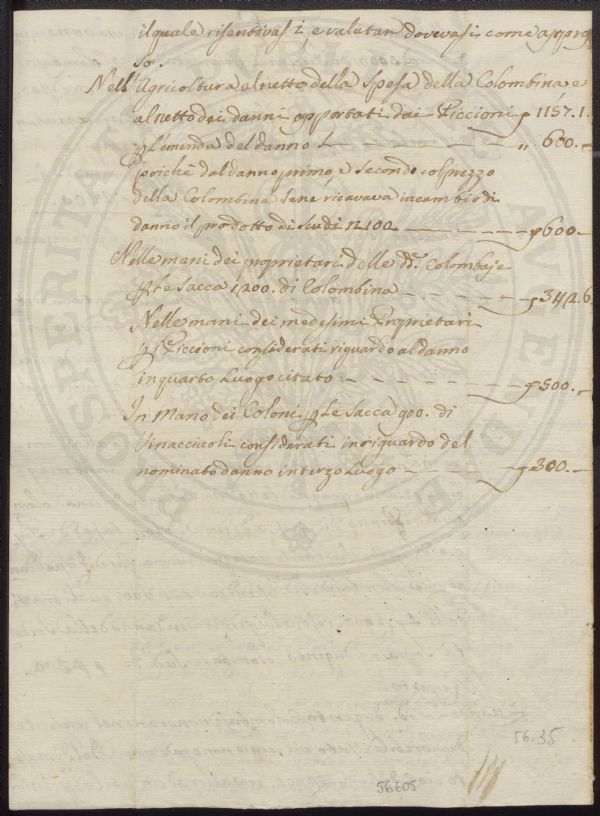 il quale risentivasi, e valutar dovevasi come appres
so.
Nell'Agricoltura al netto della Spesa della Colombina e
al netto dei danni apportati dai Piccioni 1157.1.
p l'emenda del danno „ 600.
poichè dal danno primo, e secondo col prezzo
della Colombina se ne ricavava in cambio di
danno il prodotto di Scudi 12100. 600.
Nelle mani dei proprietarj delle dd. Colombaje
p le Sacca 1200. di Colombina 342.6
Nelle mani dei medesimi Proprietarj
p i Piccioni considerati riguardo al danno
in quarto Luogo citato 500.
In Mano dei Coloni p Le Sacca 900. di
Vinacciuoli considerati in riguardo del
nominato danno in terzo Luogo 300.
PROSPERITATI AUGENDAE
56.35
56.605